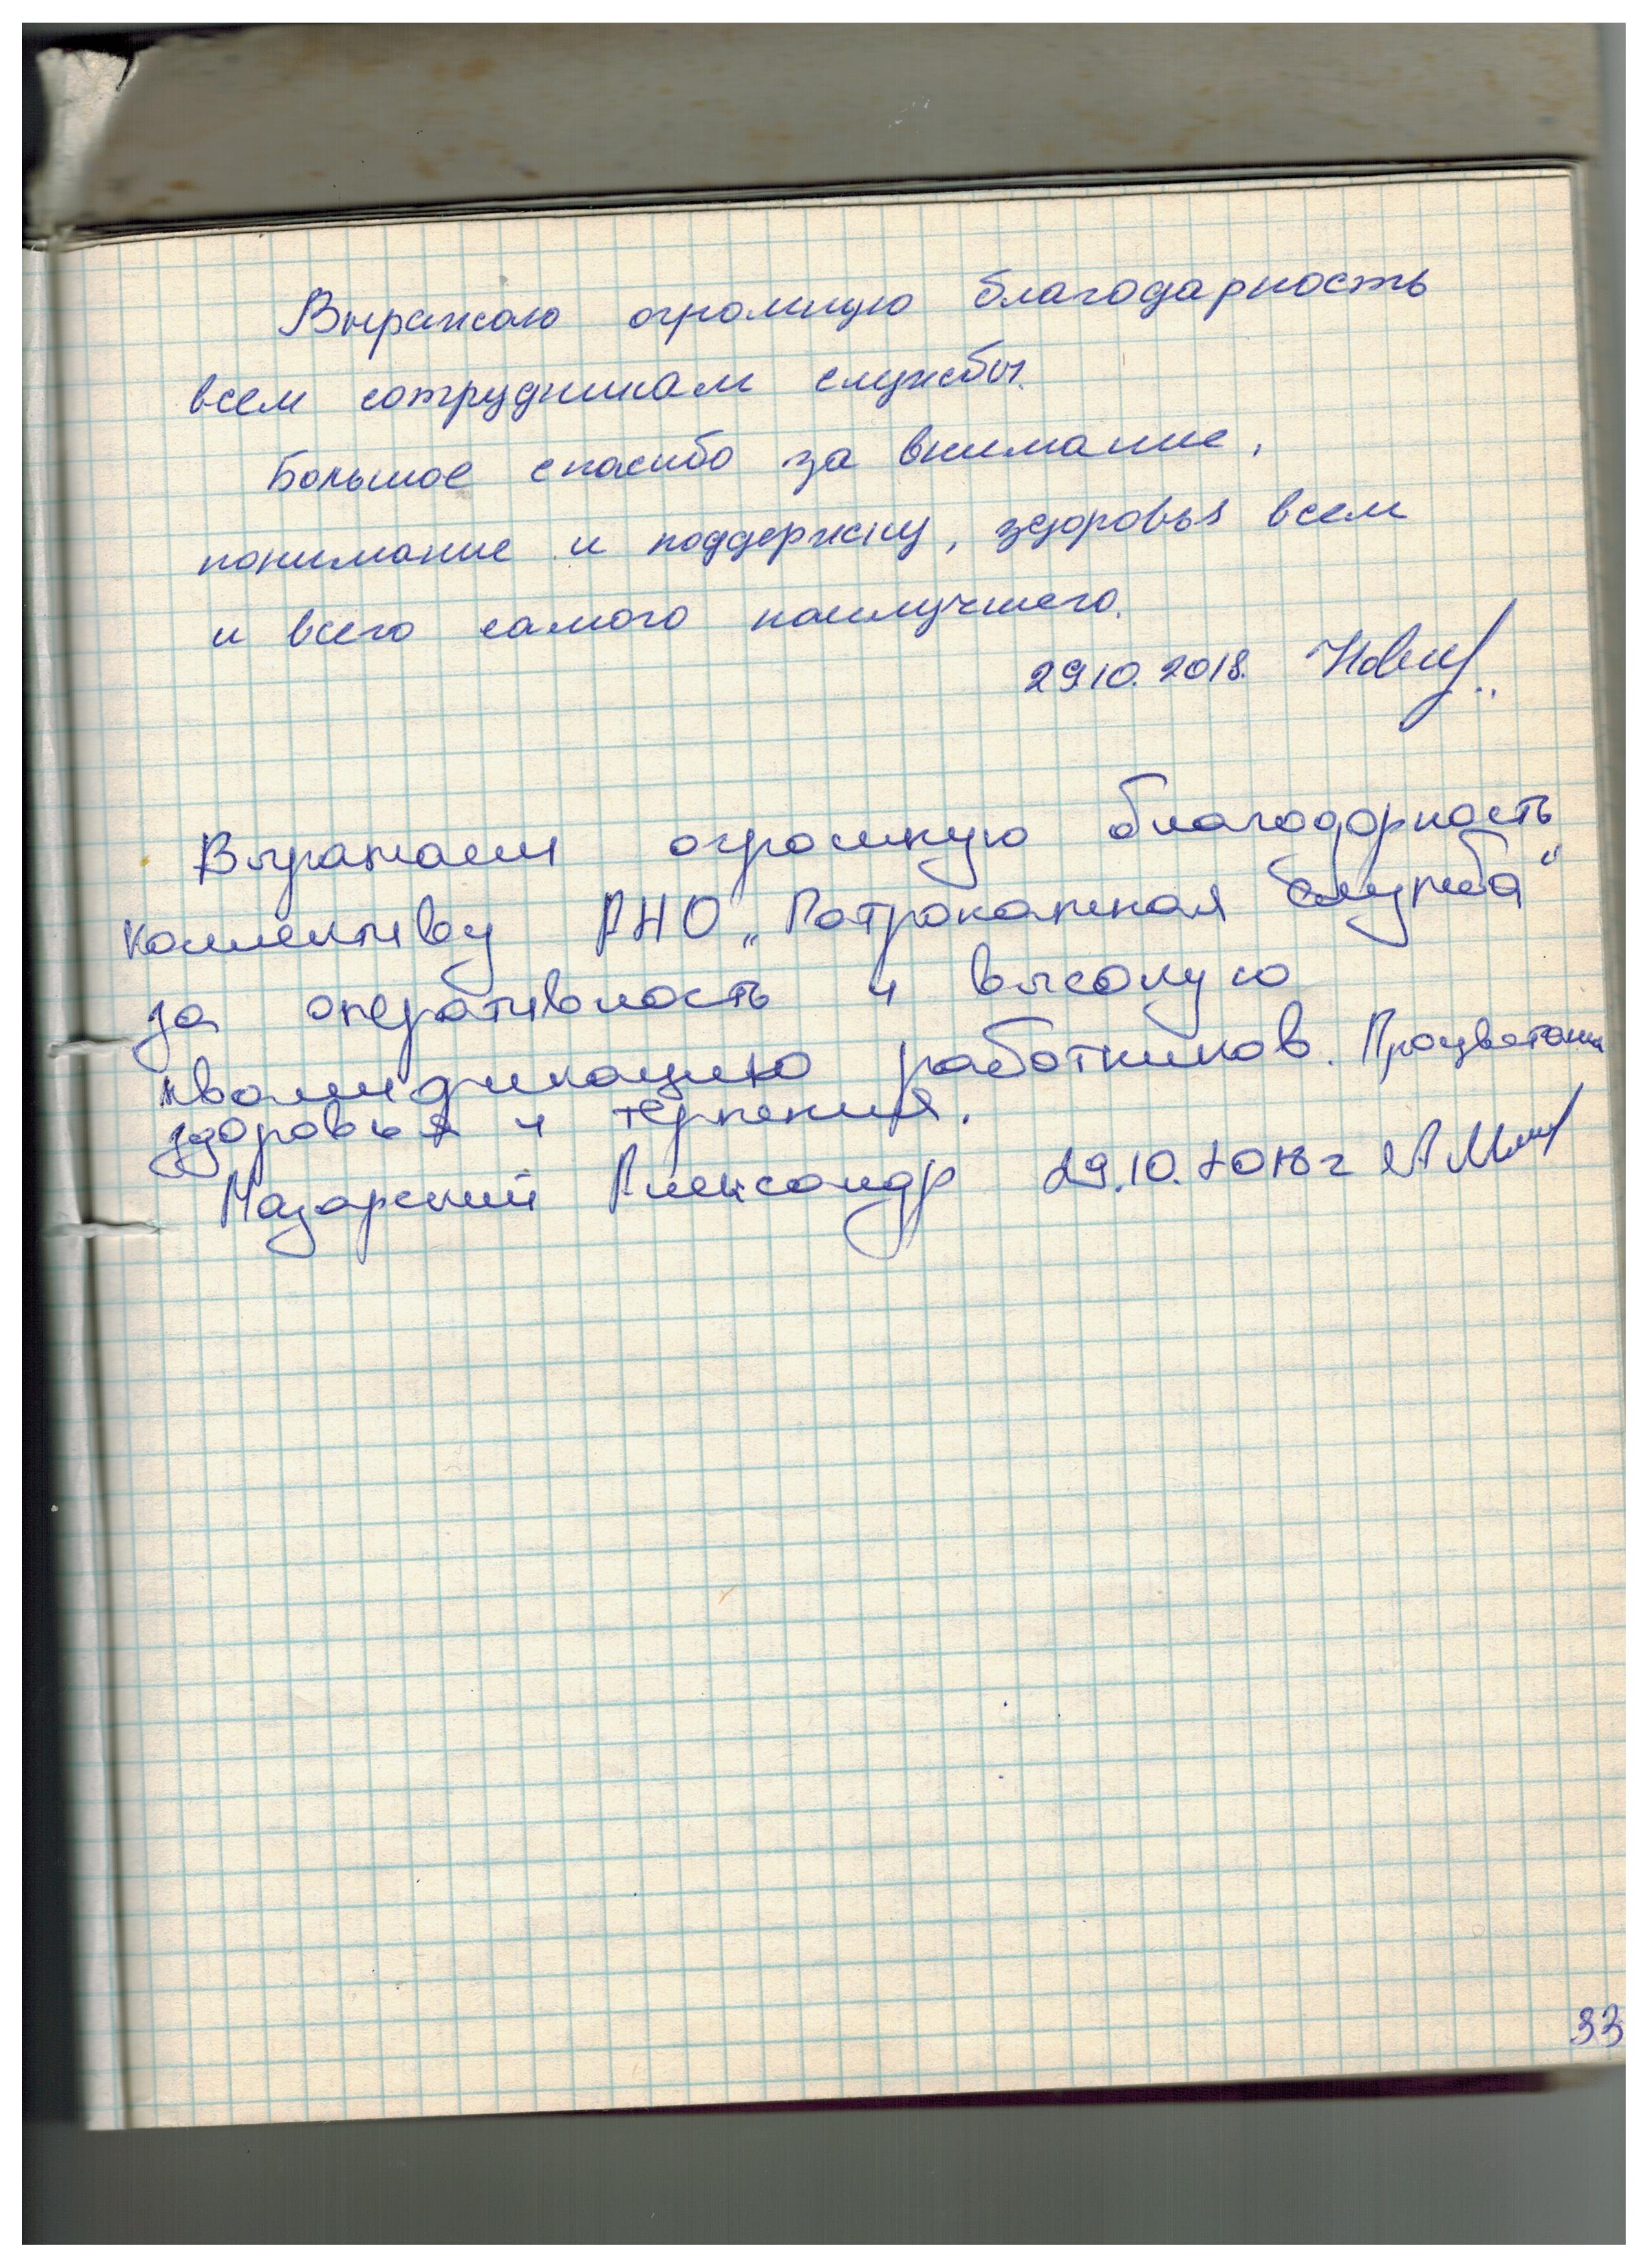 Выражаю огромную благодарность
всем сотрудникам службы.
Большое спасибо за внимание,
понимание и поддержку, здоровья всем
и всего самого наилучшего.
29.10.2018.
Выражаем огромную благодарность
коллективу АНО „Патронажная служба“
за оперативность и высокую
квалификацию работников. Процветания
здоровья и терпения.
Назарский Александр 29.10.2018 г
33